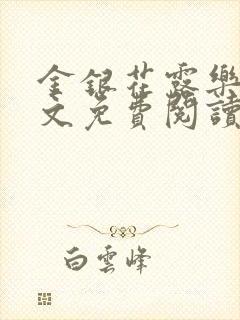 金銀花露樂
文免費閱讀
白雲峰